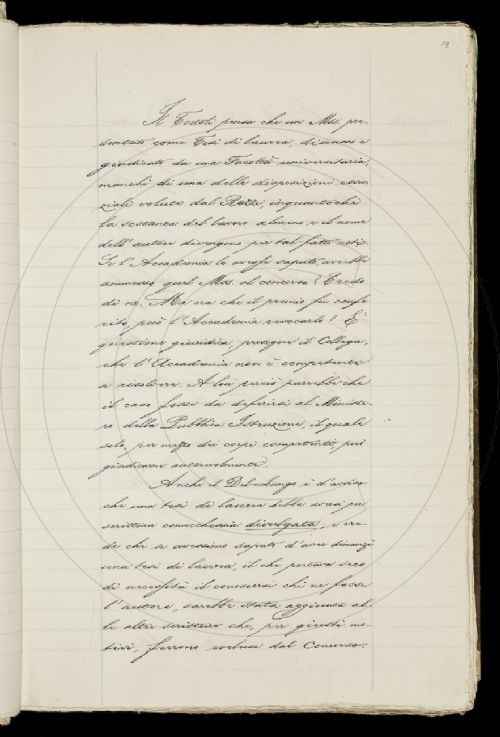 19
Il Tocco pensa che un Mss. pre-
sentato come Tesi di laurea, discusso e
giudicato da una Facoltà universitaria,
manchi di una delle disposizioni essen-
ziali volute dal Rezzi, inquantochè
la sostanza del lavoro almeno e il nome
dell'autore divengono per tal fatto noti.
Se l'Accademia lo avesse saputo avrebbe
ammesso quel Mss. al concorso? Credo
di no. Ma ora che il premio fu confe-
rito, può l'Accademia revocarlo? È
questione giuridica, prosegue il Collega,
che l'Accademia non è competente
a risolvere. A lui perciò parrebbe che
il caso fosse da deferirsi al Ministe-
ro della Pubblica Istruzione, il quale
solo, per mezzo dei corpi competenti, può
giudicarne autorevolmente.
Anche il Del Lungo è d'avviso
che una tesi di laurea debba aversi per
scrittura comecchessia divulgata, e cre-
de che se avessimo saputo d'aver dinanzi
una tesi di laurea, il che portava seco
di necessità il conoscersi chi ne fosse
l'autore, sarebbe stata aggiunta al-
le altre scritture che, per giusti mo-
tivi, furono escluse dal Concorso.